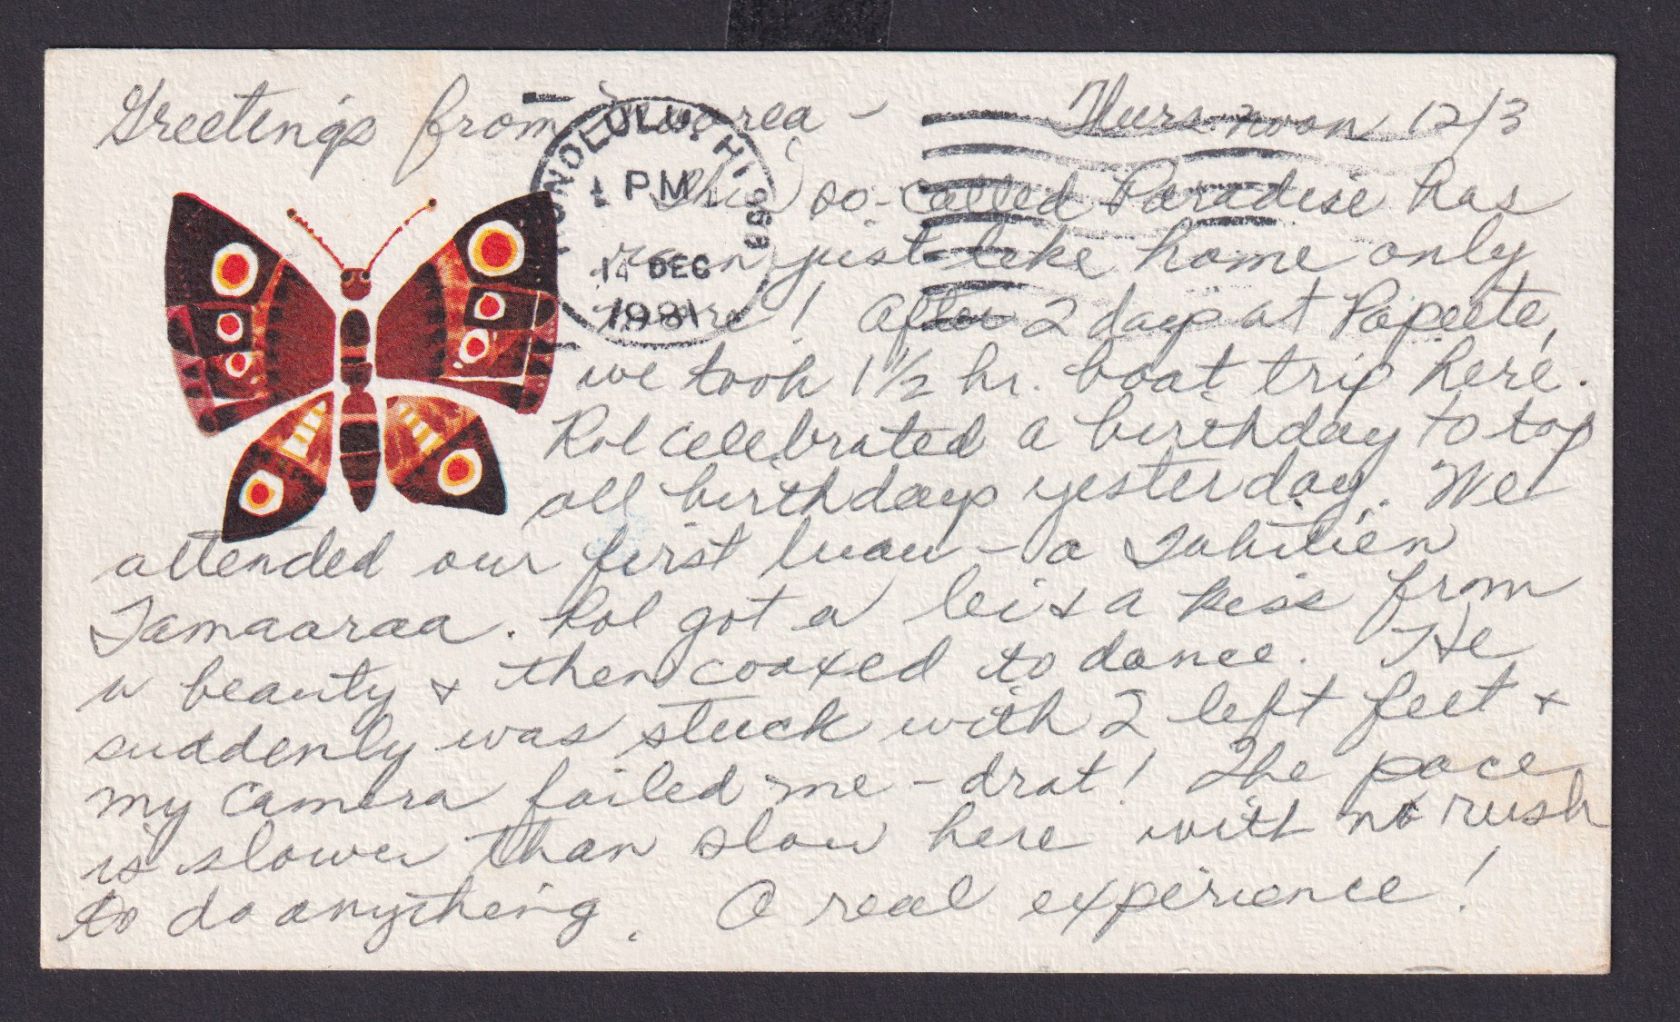 Greetings from Moorea - Thurs noon 12/3
HONOLULU, HI 968
PM
14 DEC
1981
This so-called Paradise has
rain just like home only
more! After 2 days at Papeete,
we took 1 1/2 hr. boat trip here.
Rol celebrated a birthday to top
all birthdays yesterday. We
attended our first luau - a Tahitien
Tamaaraa. Rol got a lei & a kiss from
a beauty & then coaxed to dance. He
suddenly was stuck with 2 left feet &
my camera failed me - drat! The pace
is slower than slow here with no rush
to do anything. A real experience!